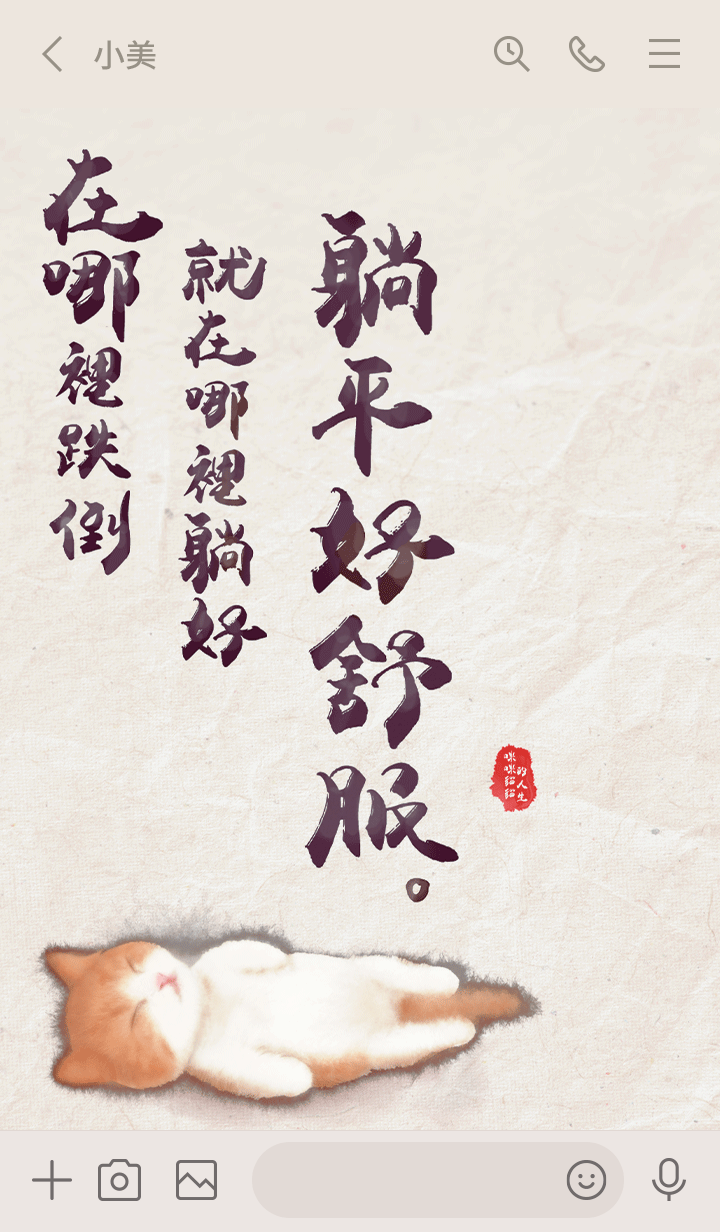 小美
在哪裡跌倒
就在哪裡躺好
躺平好舒服。
咪咪貂貂
的人生